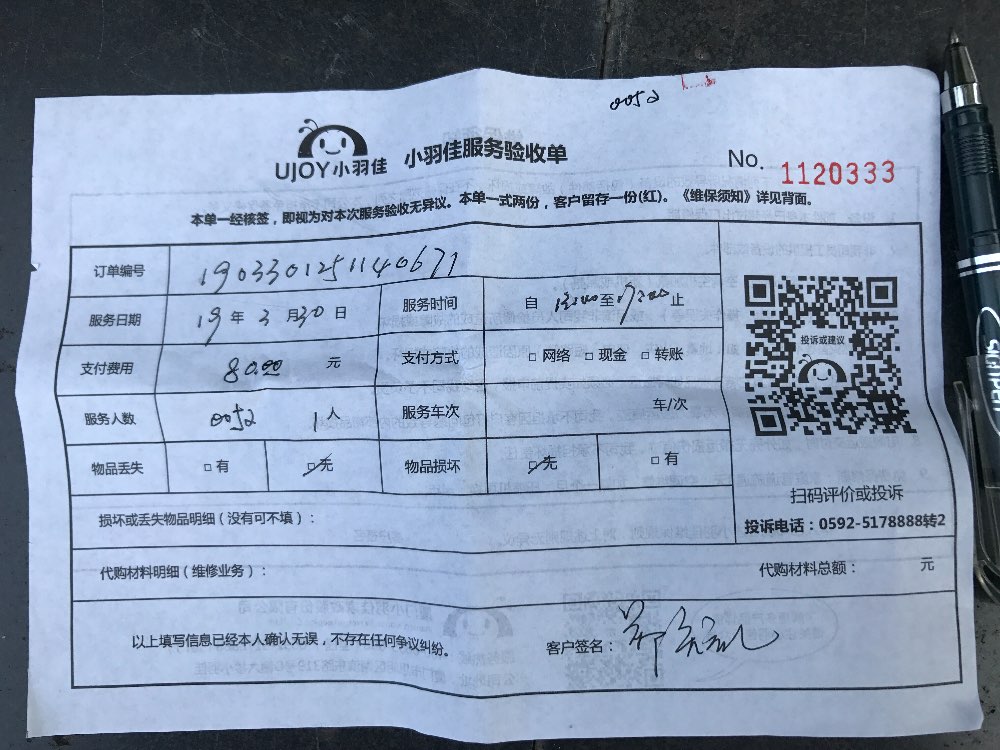 0052
UJOY小羽佳 小羽佳服务验收单 No. 1120333
本单一经核签，即视为对本次服务验收无异议。本单一式两份，客户留存一份(红)。《维保须知》详见背面。
订单编号 1903301251140671
服务日期 19年3月30日 服务时间 自13:00至17:00止
支付费用 80.00 元 支付方式 □网络 □现金 □转账
服务人数 0052 1人 服务车次 车/次
物品丢失 □有 ☑无 物品损坏 ☑无 □有
投诉或建议
扫码评价或投诉
投诉电话：0592-5178888转2
损坏或丢失物品明细（没有可不填）：
代购材料明细（维修业务）： 代购材料总额： 元
以上填写信息已经本人确认无误，不存在任何争议纠纷。 客户签名：